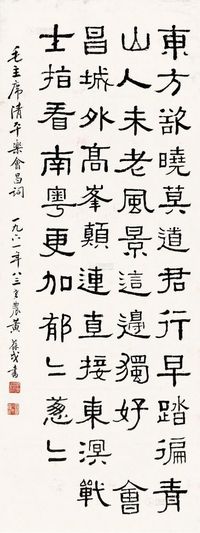 東方欲曉莫道君行早踏徧青
山人未老風景這邊獨好 會
昌城外高峯顛連直接東溟戰
士指看南粵更加郁〻蔥〻
毛主席清平樂會昌詞 一九六一年 八三 農黃葆戉書